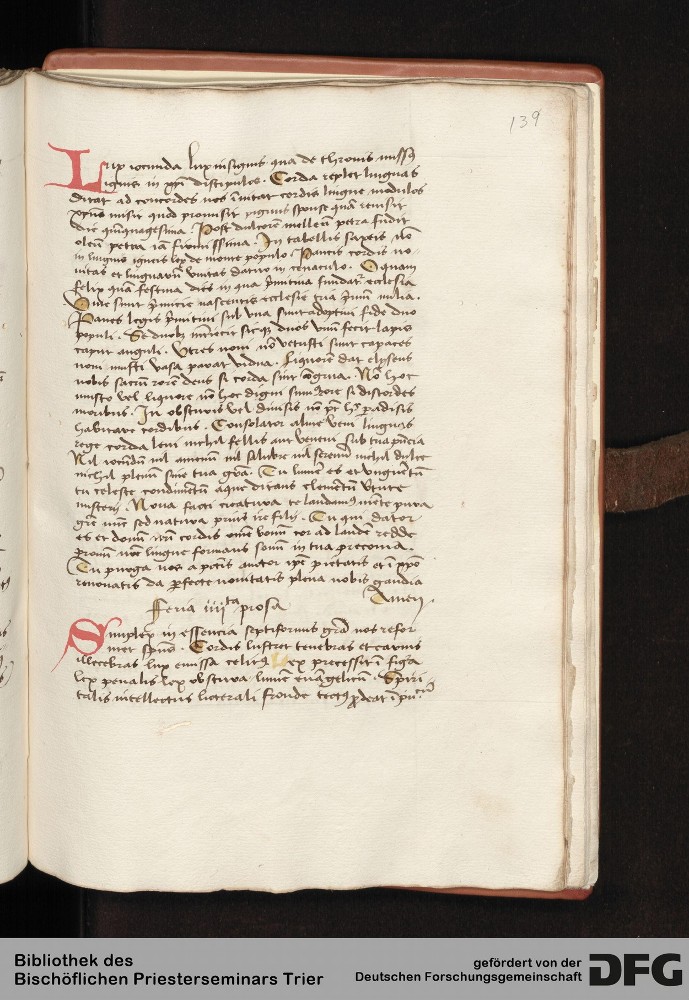 139
Lux iocunda lux insignis qua de thronis missus
ignis in xpi discipulos . Corda replet linguas
ditat ad concordes nos inuitat cordis lingue modulos
xpus misit quod promisit pignus sponse quam reuisit
die quinquagesima . Post dulcorem melleum petra fudit
oleum petra iam firmissima . In tabellis saxeis non
in linguis igneis lex de monte populo . Paucis cordis no-
uitas et linguarum vnitas datur in cenaculo . O quam
felix quam festina dies in qua primitiua fundatur ecclesia
Viue sunt primicie nascentis ecclesie tria primum milia .
Panes legis primitiui sub vna sunt adoptiui fide duo
populi . Se duobus interiecit sicque duos vnum fecit lapis
caput anguli . Vtres noui non vetusti sunt capaces
noui musti vasa parat vidua . Liquorem dat elyseus
nobis sacrum rorem deus si corda sint congrua . Non hoc
musto vel liquore non hoc digni sumus rore si discordes
moribus . In obscuris vel diuisis non potest hec paradisis
habitare cordibus . Consolator alme veni linguas
rege corda leni nichil fellis aut veneni sub tua presencia
Nil iocundum nil amenum nil salubre nil serenum nichil dulce
nichil plenum sine tua gratia . Tu lumen es et vnguentum
tu celeste condimentum aque ditans elementum virtute
misterij . Noua facti creatura te laudamus mente pura
gratie nunc sed natura prius ire filij . Tu qui dator
es et donum nostri cordis omne bonum cor ad laudem redde
pronum nostre lingue formans sonum in tua preconia .
Tu purga nos a peccatis auctor ipse pietatis et in xpo
renouatis da perfecte nouitatis plena nobis gaudia
Amen .
Feria iiijta prosa
Simplex in essencia septiformis gratia nos refor-
met spiritus . Cordis lustret tenebras et carnis
illecebras lux emissa celitus Lex precessit in figura
lex penalis lex obscura lumen euangelicum . Spiri
talis intellectus litterali fronde tectus prodeat in publicum
Bibliothek des
Bischöflichen Priesterseminars Trier
gefördert von der
Deutschen Forschungsgemeinschaft
DFG